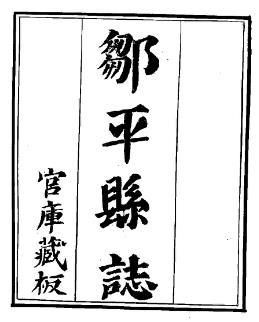 鄒平縣誌
官庫藏板